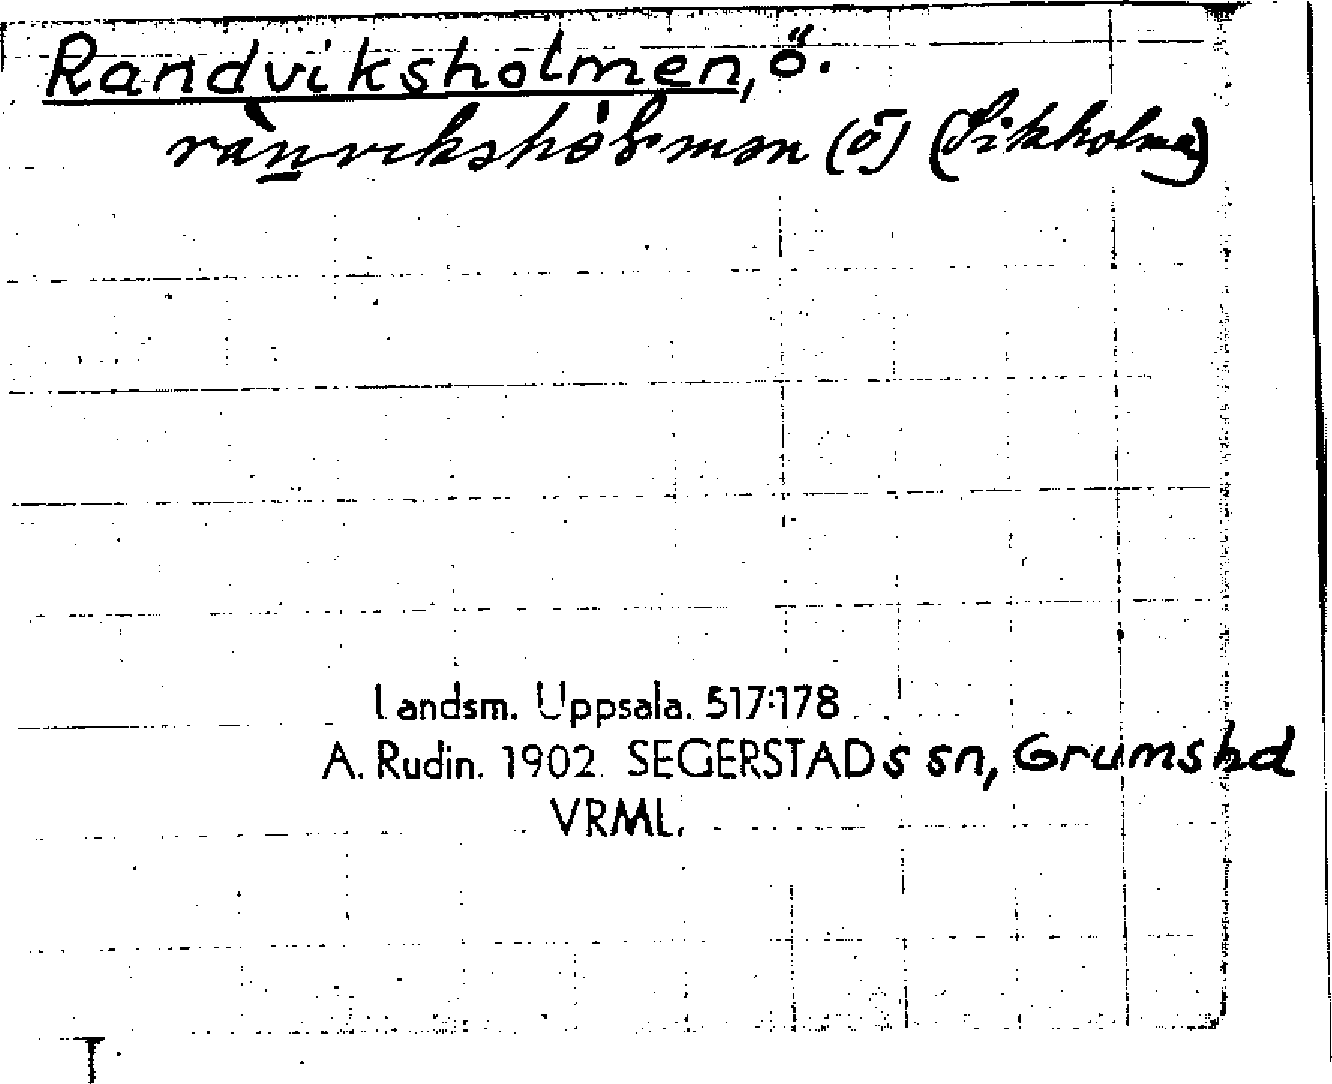 Randviksholmen, ö.
rànvikshól·mən (ö) (Sikholma)
Landsm. Uppsala. 517:178
A. Rudin. 1902. SEGERSTADs sn, Grums hd
VRML.
T